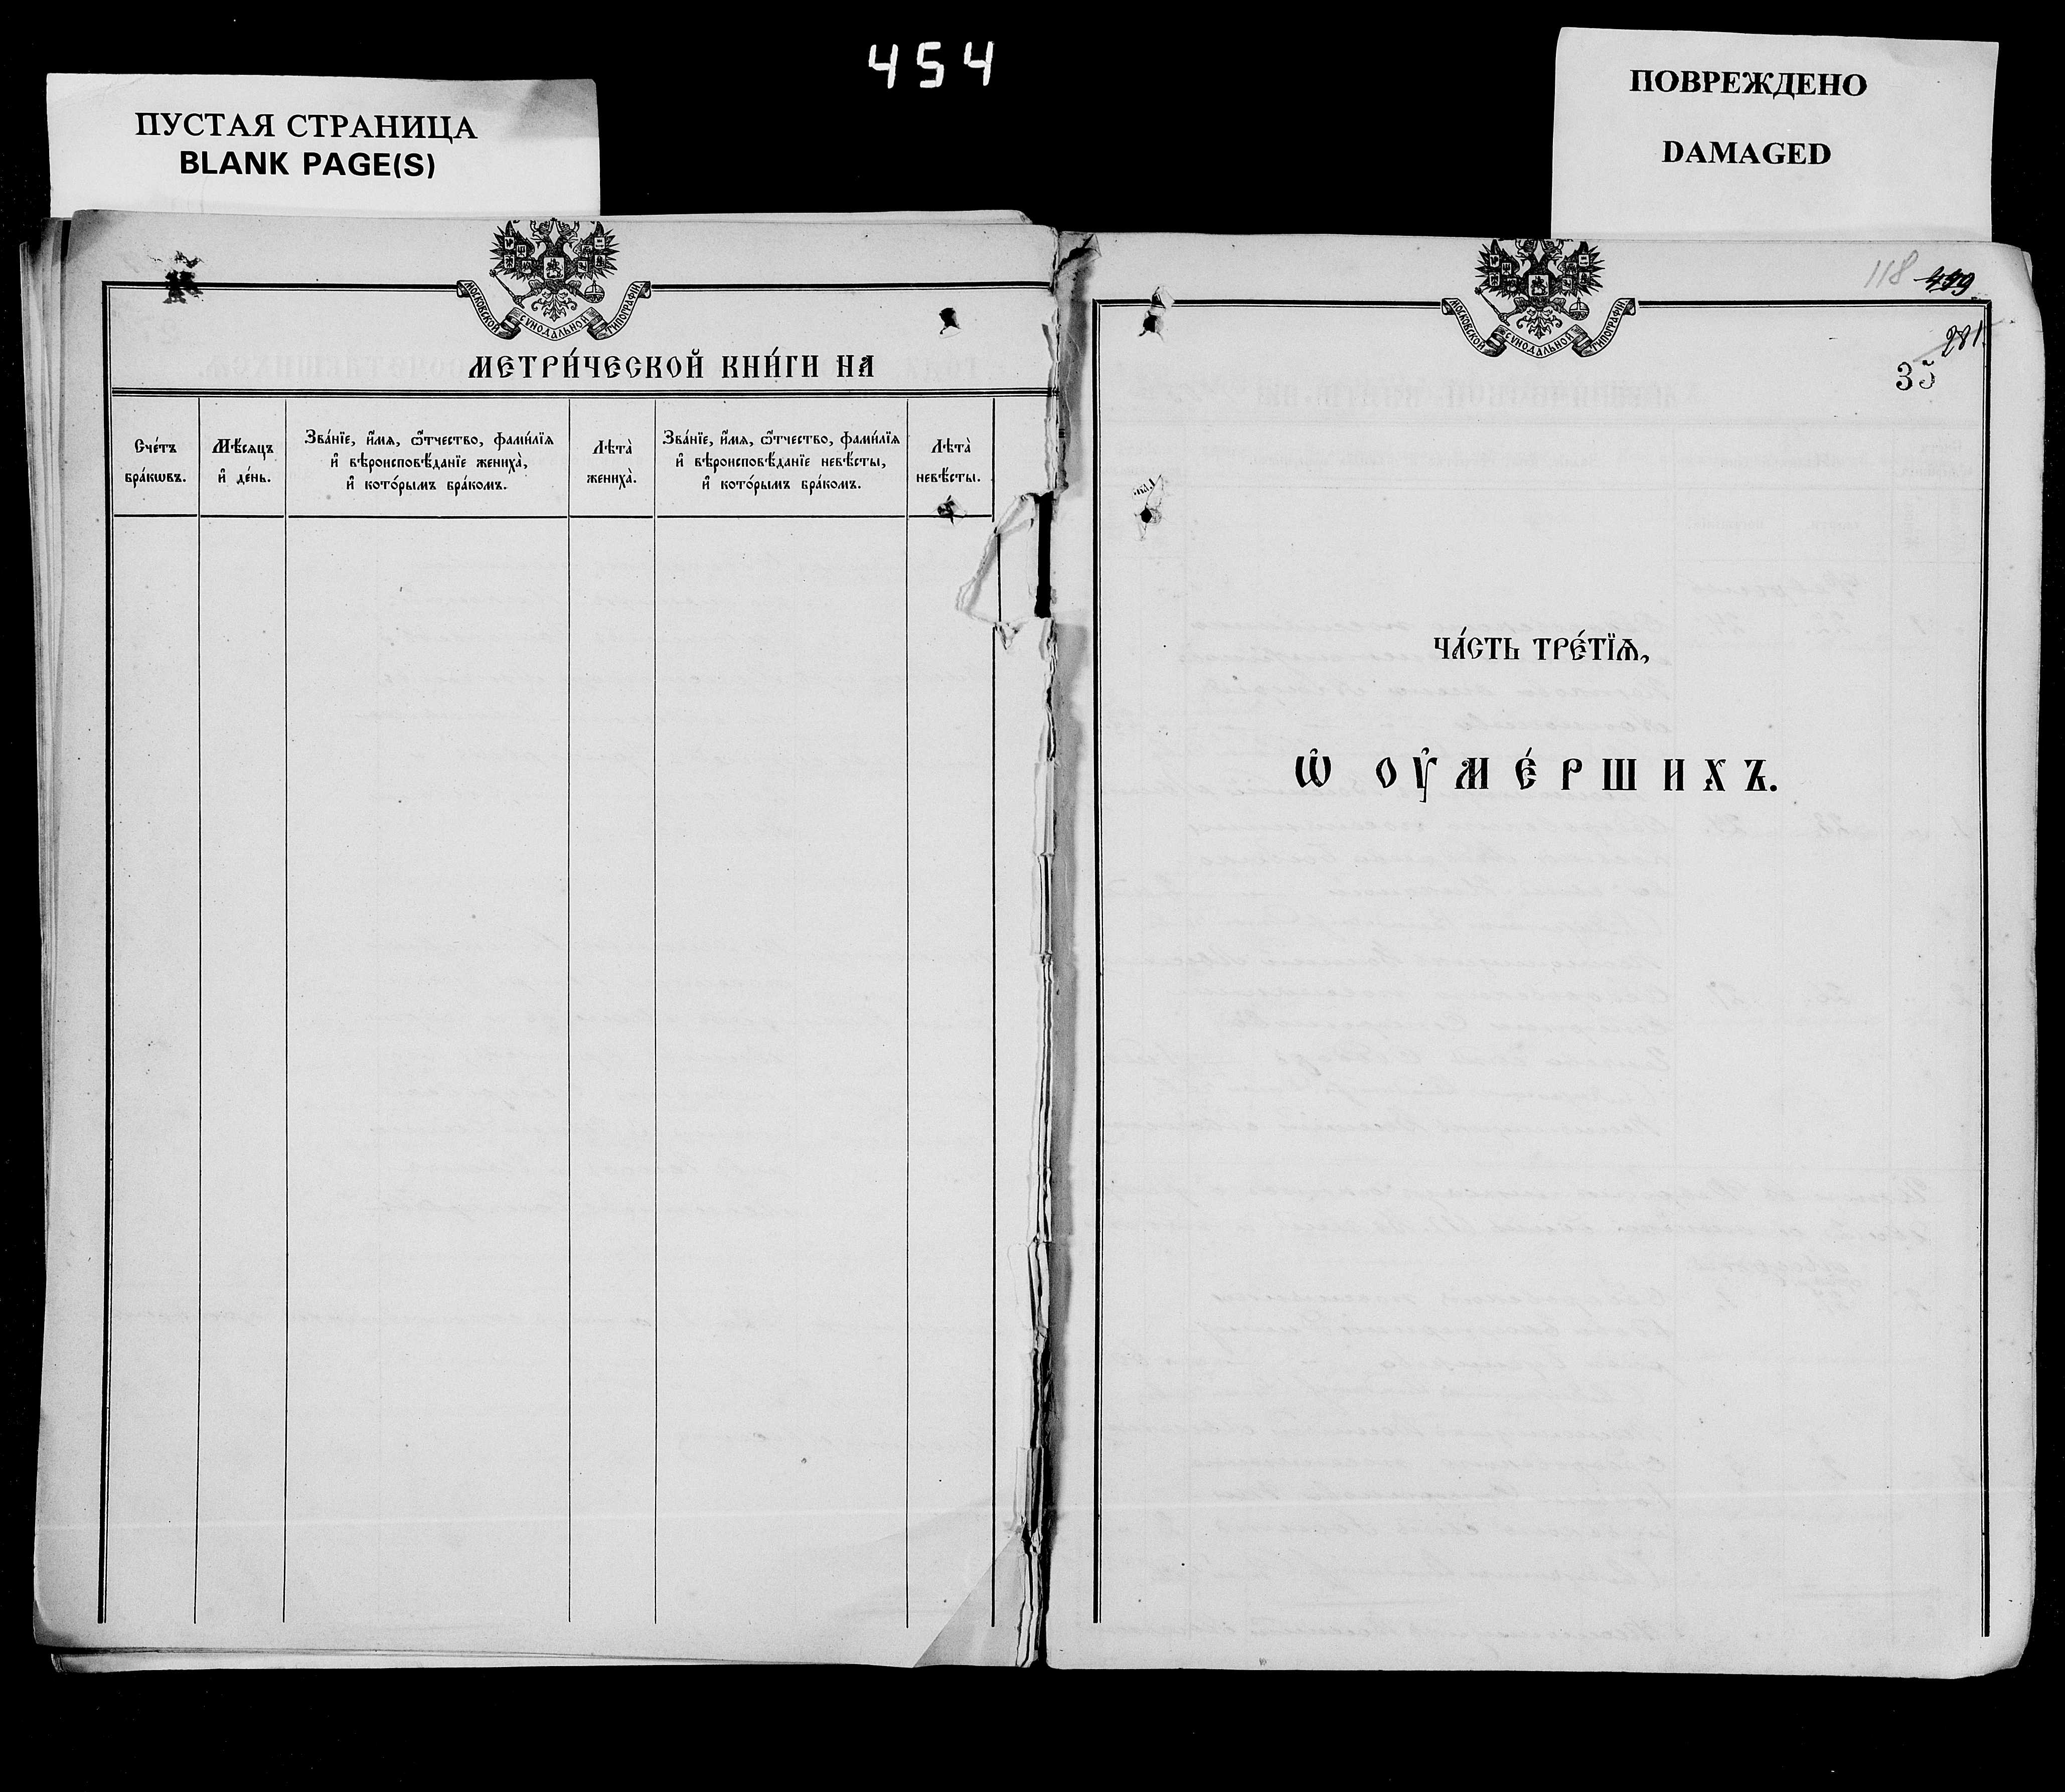 454
ПУСТАЯ СТРАНИЦА
BLANK PAGE(S)
ПОВРЕЖДЕНО
DAMAGED
МОСКОВСКОЙ СѴНОДАЛЬНОЙ ТИПОГРАФІИ
МЕТРИ́ЧЕСКОЙ КНИ́ГИ НА
Сче́тъ бра́кѡвъ.
Мѣ́сяцъ и҆ де́нь.
Зва́нїе, и҆́мя, ѻ҆́тчество, фами́лїя
и҆ вѣроисповѣ́данїе жениха̀,
и҆ кото́рымъ бра́комъ.
Лѣта̀ жениха̀.
Зва́нїе, и҆́мя, ѻ҆́тчество, фами́лїя
и҆ вѣроисповѣ́данїе невѣ́сты,
и҆ кото́рымъ бра́комъ.
Лѣта̀ невѣ́сты.
МОСКОВСКОЙ СѴНОДАЛЬНОЙ ТИПОГРАФІИ
118
281
35
ЧА́СТЬ ТРЕ́ТЇѦ,
Ѡ҆ ОУ҆МЕ́РШИХЪ.